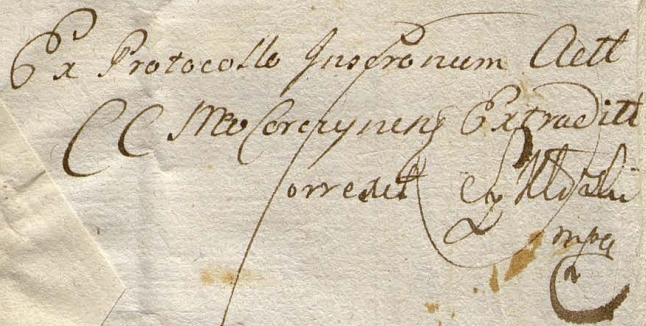 Ex Protocollo Insfronum Actt
CC Mto Corczynens Extraditt
orrexit
mpa